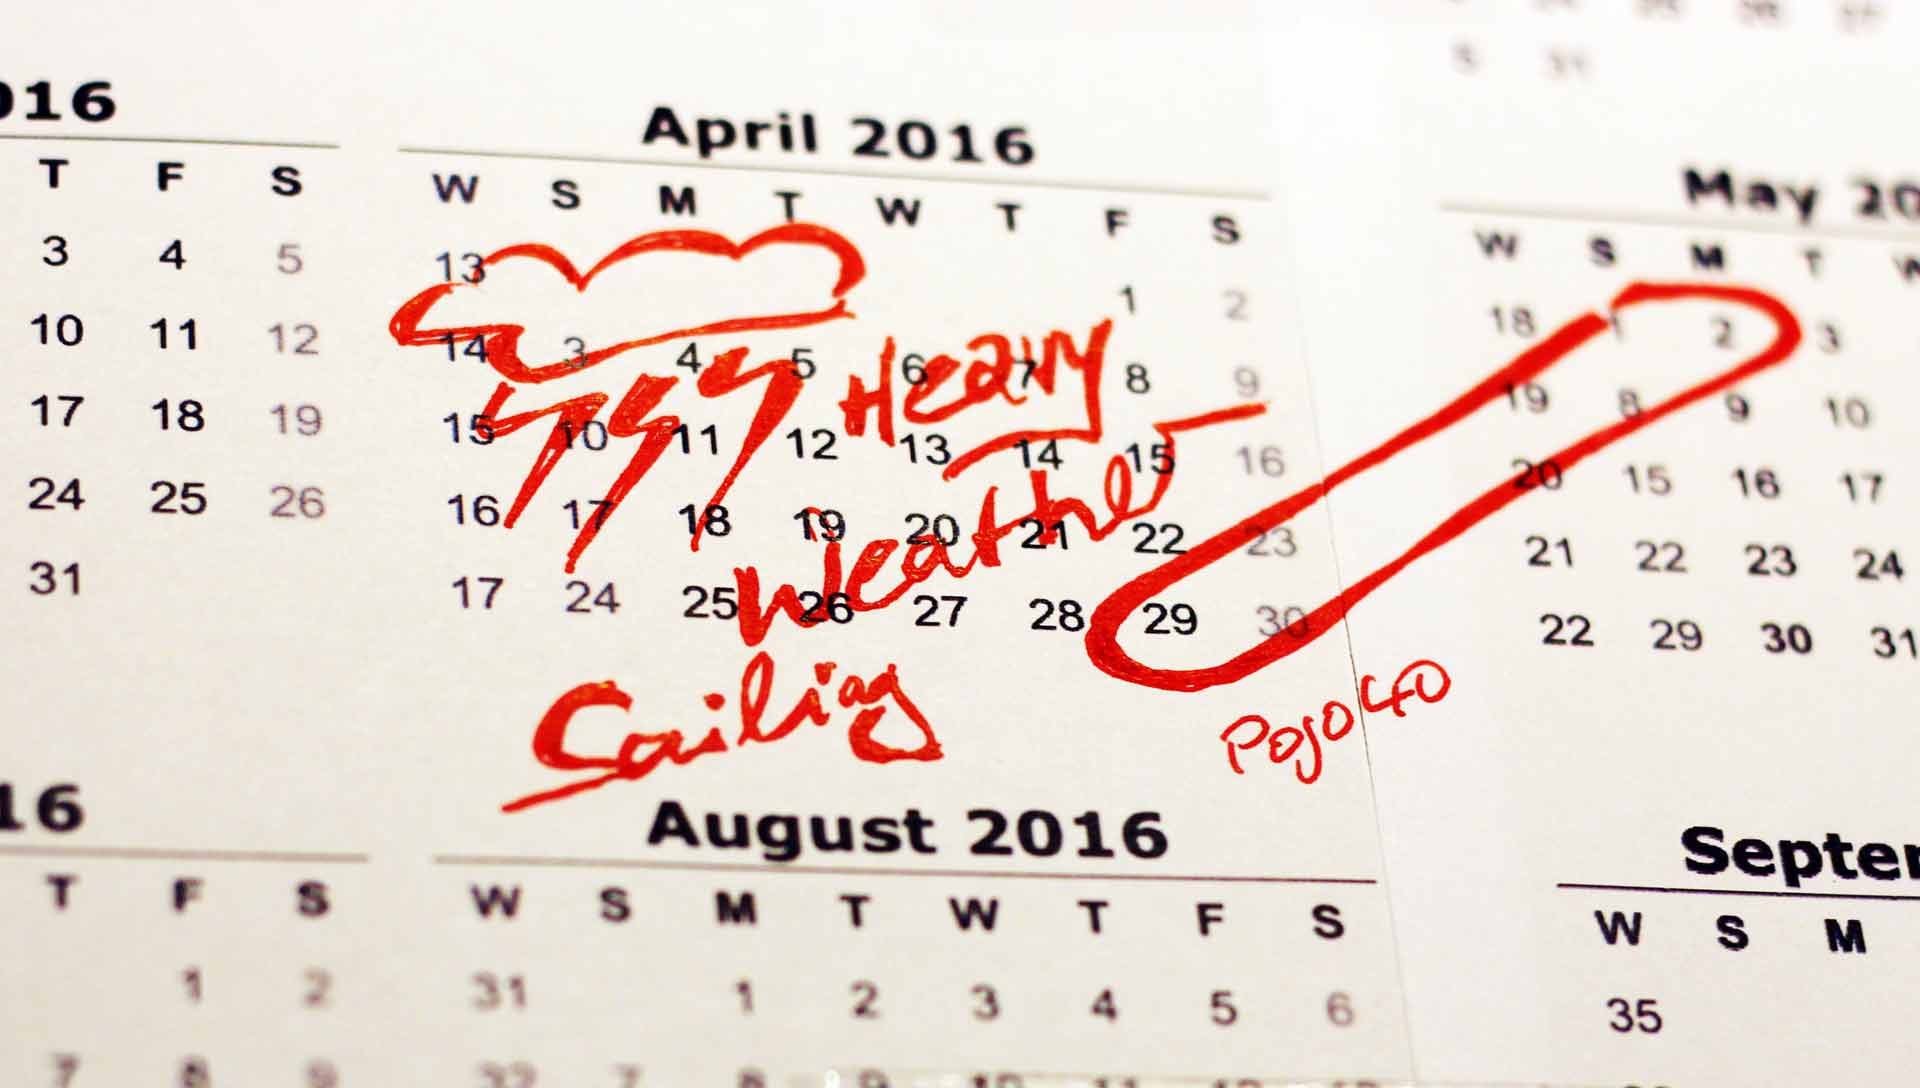 24 25 26 27
5 31
016
April 2016
May 20
T F S
W S M T W T F S
W S M T W
3 4 5
13 1 2
18 1 2 3
10 11 12
14 3 4 5 6 7 8 9
19 8 9 10
17 18 19
15 10 11 12 13 14 15 16
20 15 16 17
24 25 26
16 17 18 19 20 21 22 23
21 22 23 24
31
17 24 25 26 27 28 29 30
22 29 30 31
Heavy
Weather
Sailing
Pojo40
16
August 2016
Septem
T F S
W S M T W T F S
W S M
1 2
31 1 2 3 4 5 6
35
7 8 9
32 7 8 9 10 11 12 13